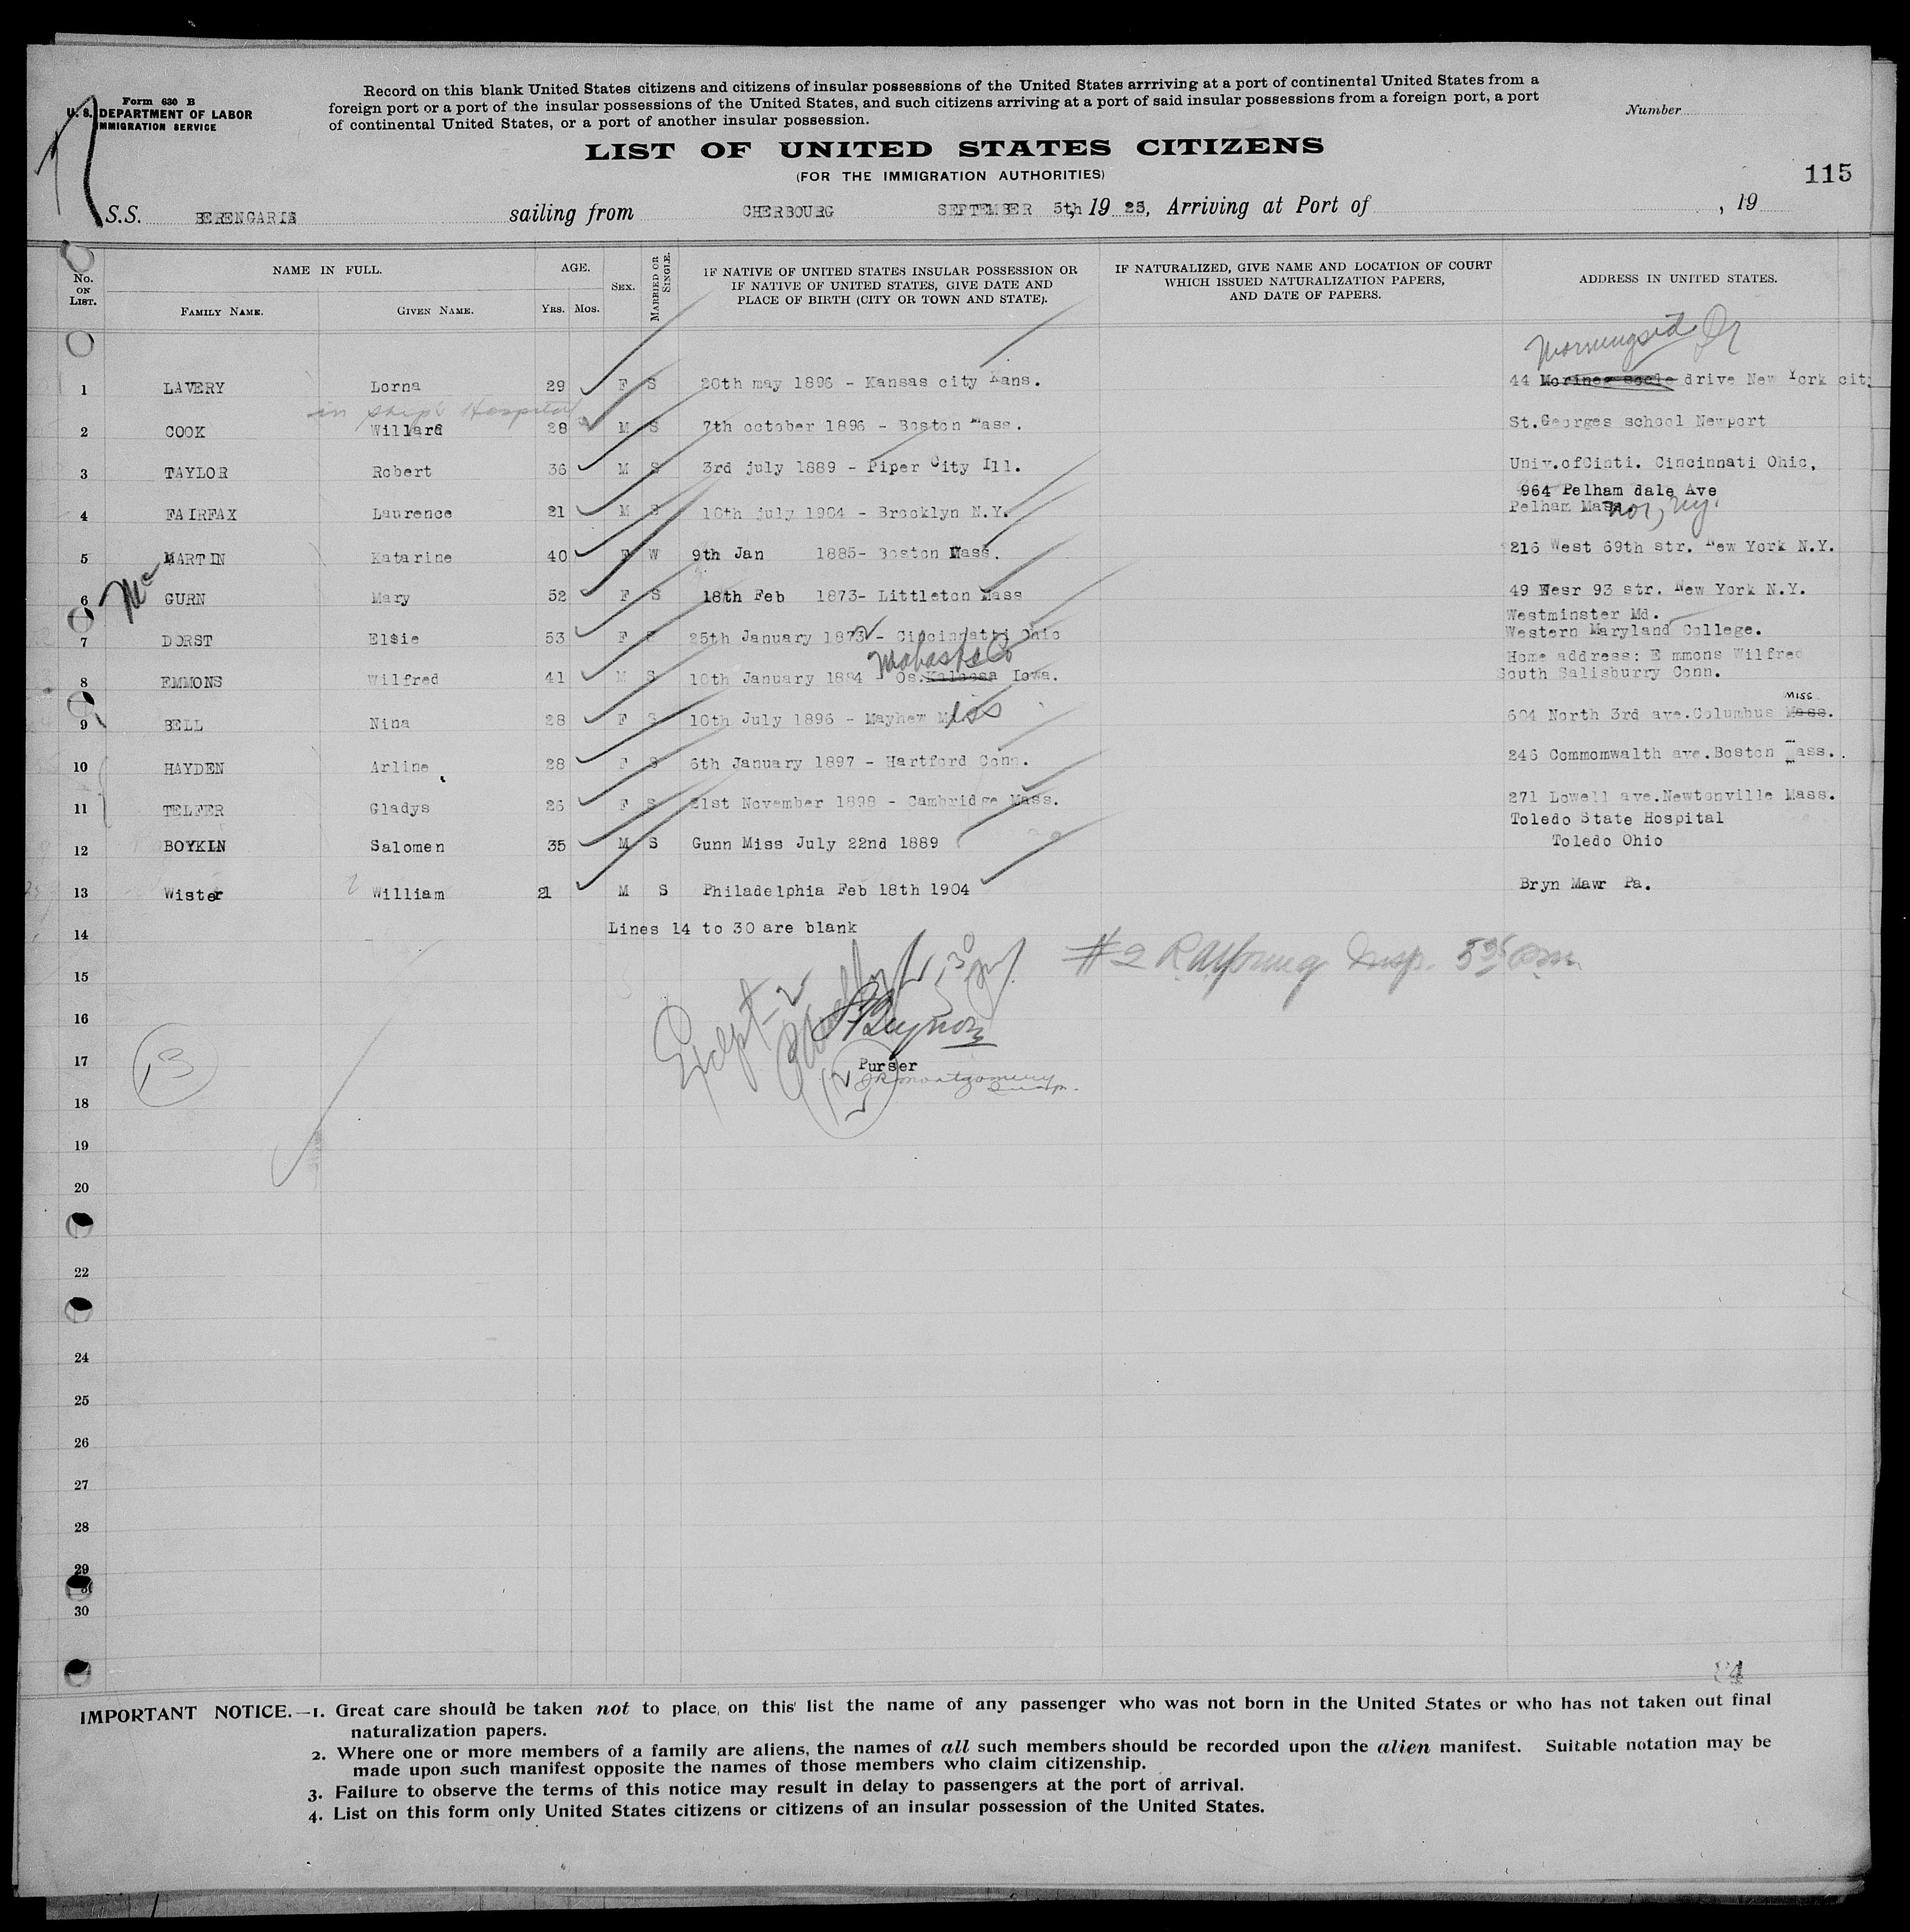 Form 630 B
U. S. DEPARTMENT OF LABOR
IMMIGRATION SERVICE
Record on this blank United States citizens and citizens of insular possessions of the United States arrriving at a port of continental United States from a
foreign port or a port of the insular possessions of the United States, and such citizens arriving at a port of said insular possessions from a foreign port, a port
of continental United States, or a port of another insular possession.
Number
LIST OF UNITED STATES CITIZENS
(FOR THE IMMIGRATION AUTHORITIES)
115
S.S. BERENGARIA sailing from CHERBOURG SEPTEMBER 5th, 19 25, Arriving at Port of , 19
No. ON LIST.
NAME IN FULL.
FAMILY NAME. GIVEN NAME.
AGE.
YRS. MOS.
SEX.
MARRIED OR SINGLE.
IF NATIVE OF UNITED STATES INSULAR POSSESSION OR
IF NATIVE OF UNITED STATES, GIVE DATE AND
PLACE OF BIRTH (CITY OR TOWN AND STATE).
IF NATURALIZED, GIVE NAME AND LOCATION OF COURT
WHICH ISSUED NATURALIZATION PAPERS,
AND DATE OF PAPERS.
ADDRESS IN UNITED STATES.
Morningside Dr
1 LAVERY Lorna 29 F S 20th may 1896 - Kansas city Kans. 44 drive New York city
in ship's Hospital
2 COOK Willard 28 M S 7th october 1896 - Boston Mass. St.Georges school Newport
3 TAYLOR Robert 36 M S 3rd july 1889 - Piper City Ill. Univ.ofCinti. Cincinnati Ohio,
964 Pelham dale Ave
4 FAIRFAX Laurence 21 M S 10th july 1904 - Brooklyn N.Y. Pelham Mass nor, ny.
5 MARTIN Katarine 40 F W 9th Jan 1885- Boston Mass. 216 West 69th str. New York N.Y.
6 Mc GURN Mary 52 F S 18th Feb 1873- Littleton Mass 49 Wesr 93 str. New York N.Y.
Westminster Md.
7 DORST Elsie 53 F S 25th January 1872 - Cincinnatti Ohio Western Maryland College.
Mahaska Co
Home address: E mmons Wilfred
8 EMMONS Wilfred 41 M S 10th January 1884 - Os.Kaloosa Iowa. South Salisburry Conn.
MISS
9 BELL Nina 28 F S 10th July 1896 - Mayhew Miss 604 North 3rd ave.Columbus Mass.
10 HAYDEN Arline 28 F S 6th January 1897 - Hartford Conn. 246 Commomwalth ave.Boston Mass.
11 TELFER Gladys 26 F S 21st November 1898 - Cambridge Mass. 271 Lowell ave.Newtonville Mass.
Toledo State Hospital
12 BOYKIN Salomen 35 M S Gunn Miss July 22nd 1889 Toledo Ohio
13 Wister William 21 M S Philadelphia Feb 18th 1904 Bryn Mawr Pa.
14 Lines 14 to 30 are blank
#2 R.A. Young Insp. 5 25 Pm.
15
16
Except-2
17
13
Purser
JRMontgomery
Insp.
12
18
19
20
22
24
25
26
27
28
29
30
84
IMPORTANT NOTICE.—1. Great care should be taken not to place, on this list the name of any passenger who was not born in the United States or who has not taken out final
naturalization papers.
2. Where one or more members of a family are aliens, the names of all such members should be recorded upon the alien manifest. Suitable notation may be
made upon such manifest opposite the names of those members who claim citizenship.
3. Failure to observe the terms of this notice may result in delay to passengers at the port of arrival.
4. List on this form only United States citizens or citizens of an insular possession of the United States.